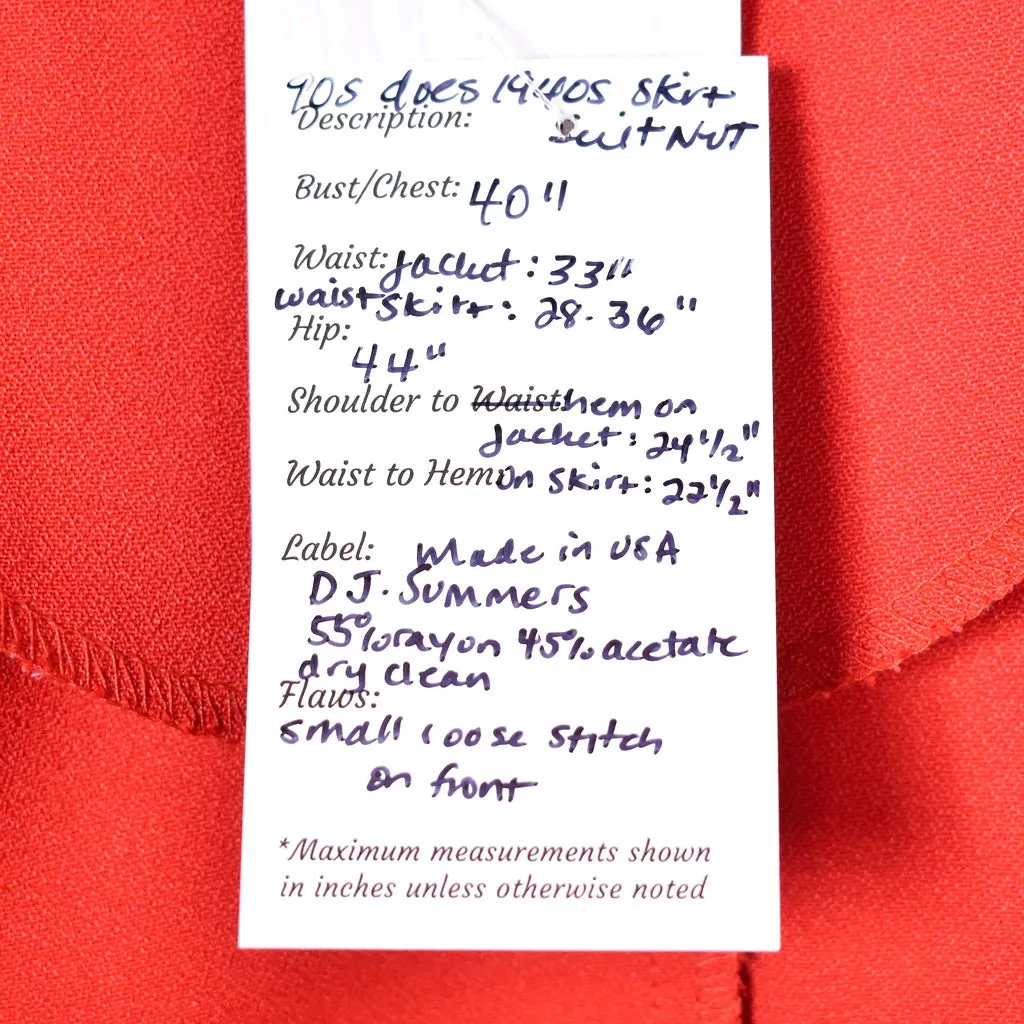 90s does 1940s skirt
Description: suit NWT
Bust/Chest: 40"
Waist: jacket: 33"
waist skirt: 28-36"
Hip:
44"
Shoulder to Waist: hem on
jacket: 24 1/2"
Waist to Hem: on skirt: 22 1/2"
Label: made in USA
D.J. Summers
55% rayon 45% acetate
dry clean
Flaws:
small loose stitch
on front
*Maximum measurements shown
in inches unless otherwise noted